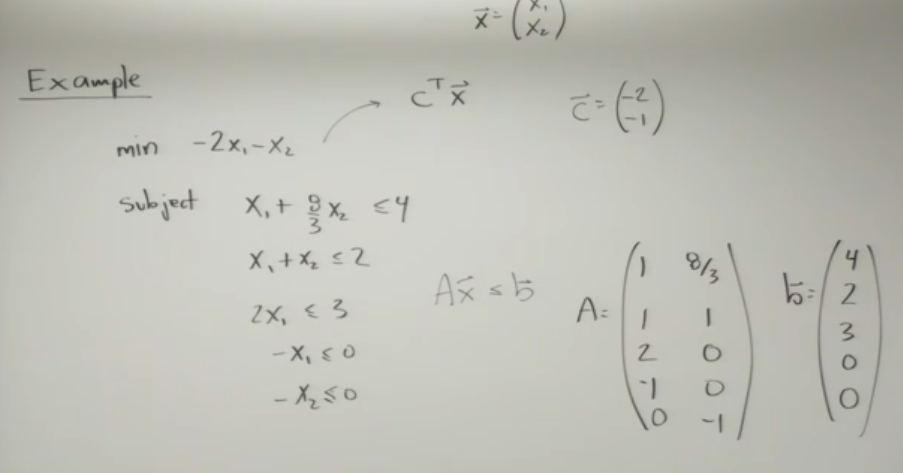 x⃗ = (x₁ x₂)
Example
cᵀx⃗
c⃗ = (-2 -1)
min -2x₁-x₂
subject x₁ + 8/3 x₂ ≤ 4
x₁ + x₂ ≤ 2
2x₁ ≤ 3
-x₁ ≤ 0
-x₂ ≤ 0
Ax⃗ ≤ b⃗
A = (1 8/3
1 1
2 0
-1 0
0 -1)
b⃗ = (4
2
3
0
0)